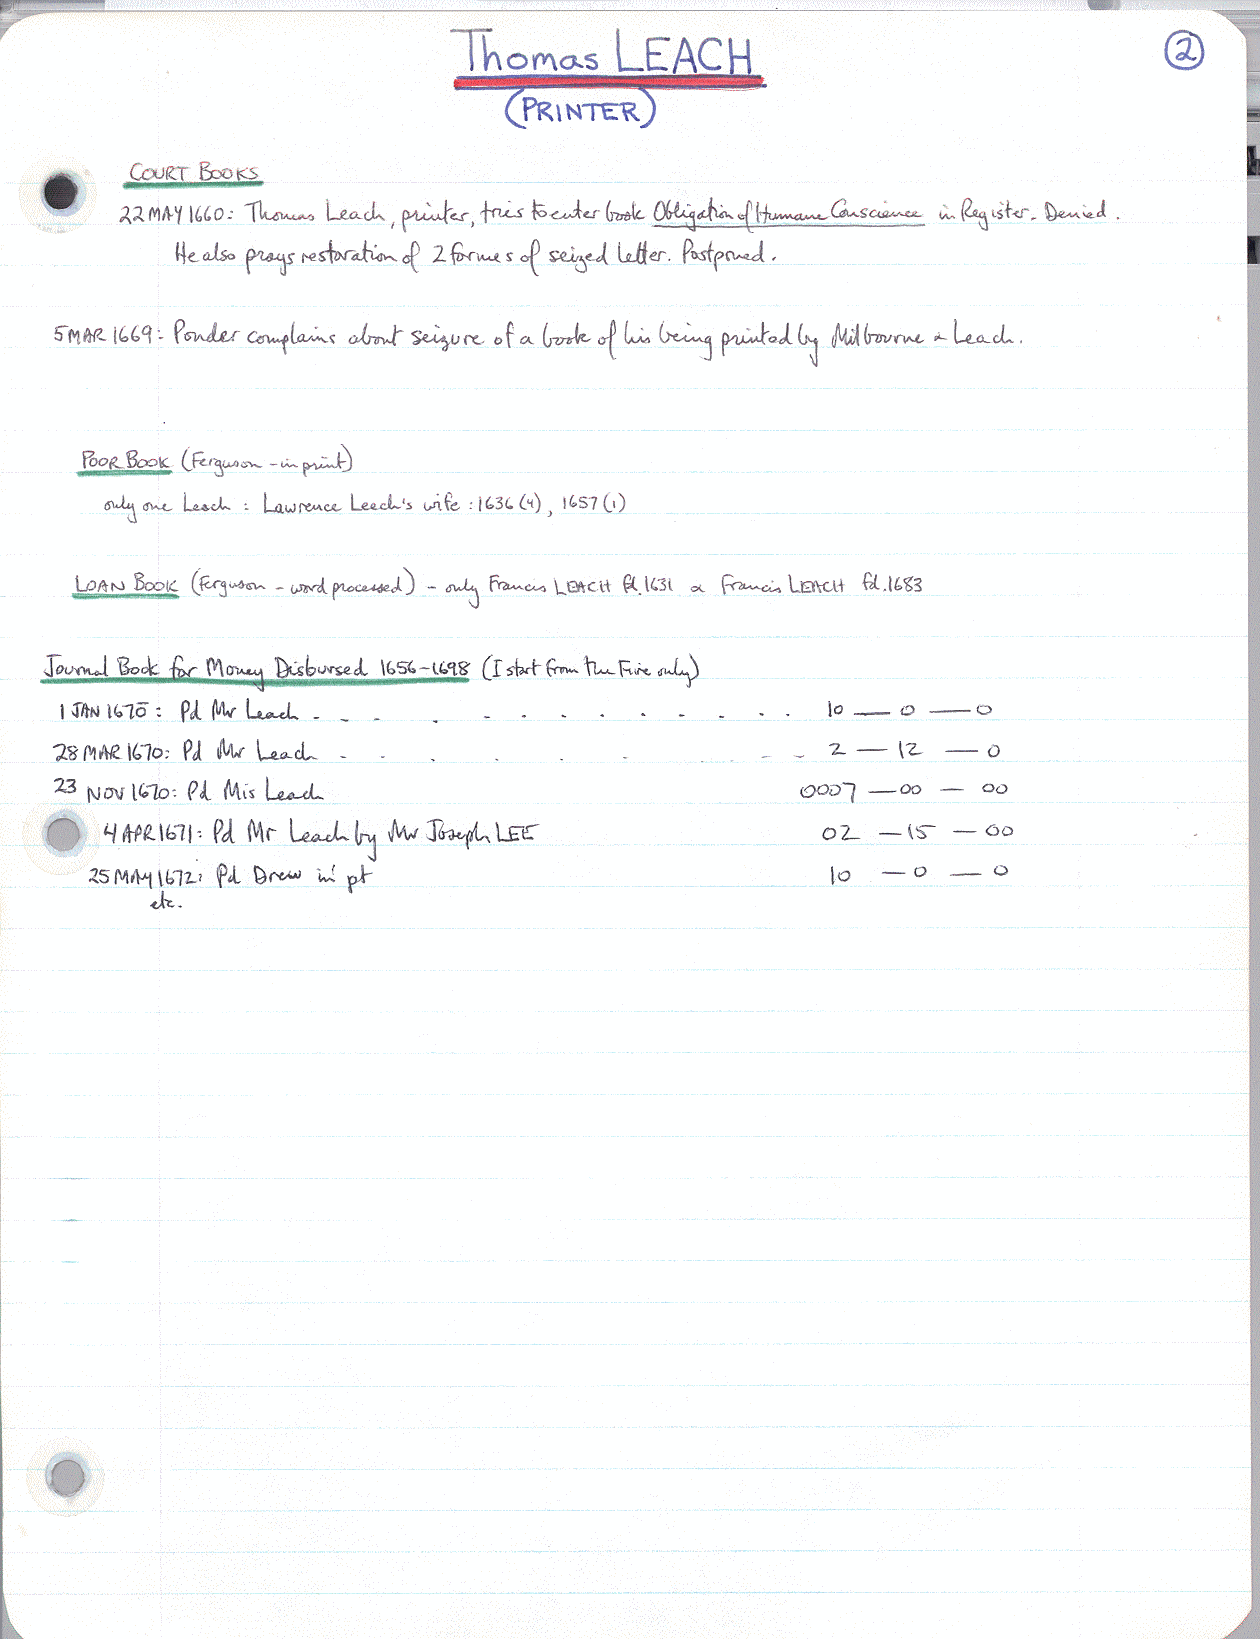 Thomas LEACH
2
(PRINTER)
COURT BOOKS
22 MAY 1660: Thomas Leach, printer, tries to enter book Obligation of Humane Conscience in Register. Denied.
He also prays restoration of 2 formes of seized letter. Postponed.
5 MAR 1669: Ponder complains about seizure of a book of his being printed by Milbourne & Leach.
POOR BOOK (Ferguson - in print)
only one Leach : Lawrence Leech's wife : 1636 (4), 1657 (1)
LOAN BOOK (Ferguson - word processed) - only Francis LEACH fd. 1631 & Francis LEACH fd. 1683
Journal Book for Money Disbursed 1656-1698 (I start from the Fire only)
1 JAN 1670: Pd Mr Leach - - - - - - - - - - - - 10 — 0 — 0
28 MAR 1670: Pd Mr Leach - - - - - - - - 2 — 12 — 0
23 NOV 1670: Pd Mis Leach 0007 — 00 — 00
4 APR 1671: Pd Mr Leach by Mr Joseph LEE 02 — 15 — 00
25 MAY 1672: Pd Drew in pt 10 — 0 — 0
etc.